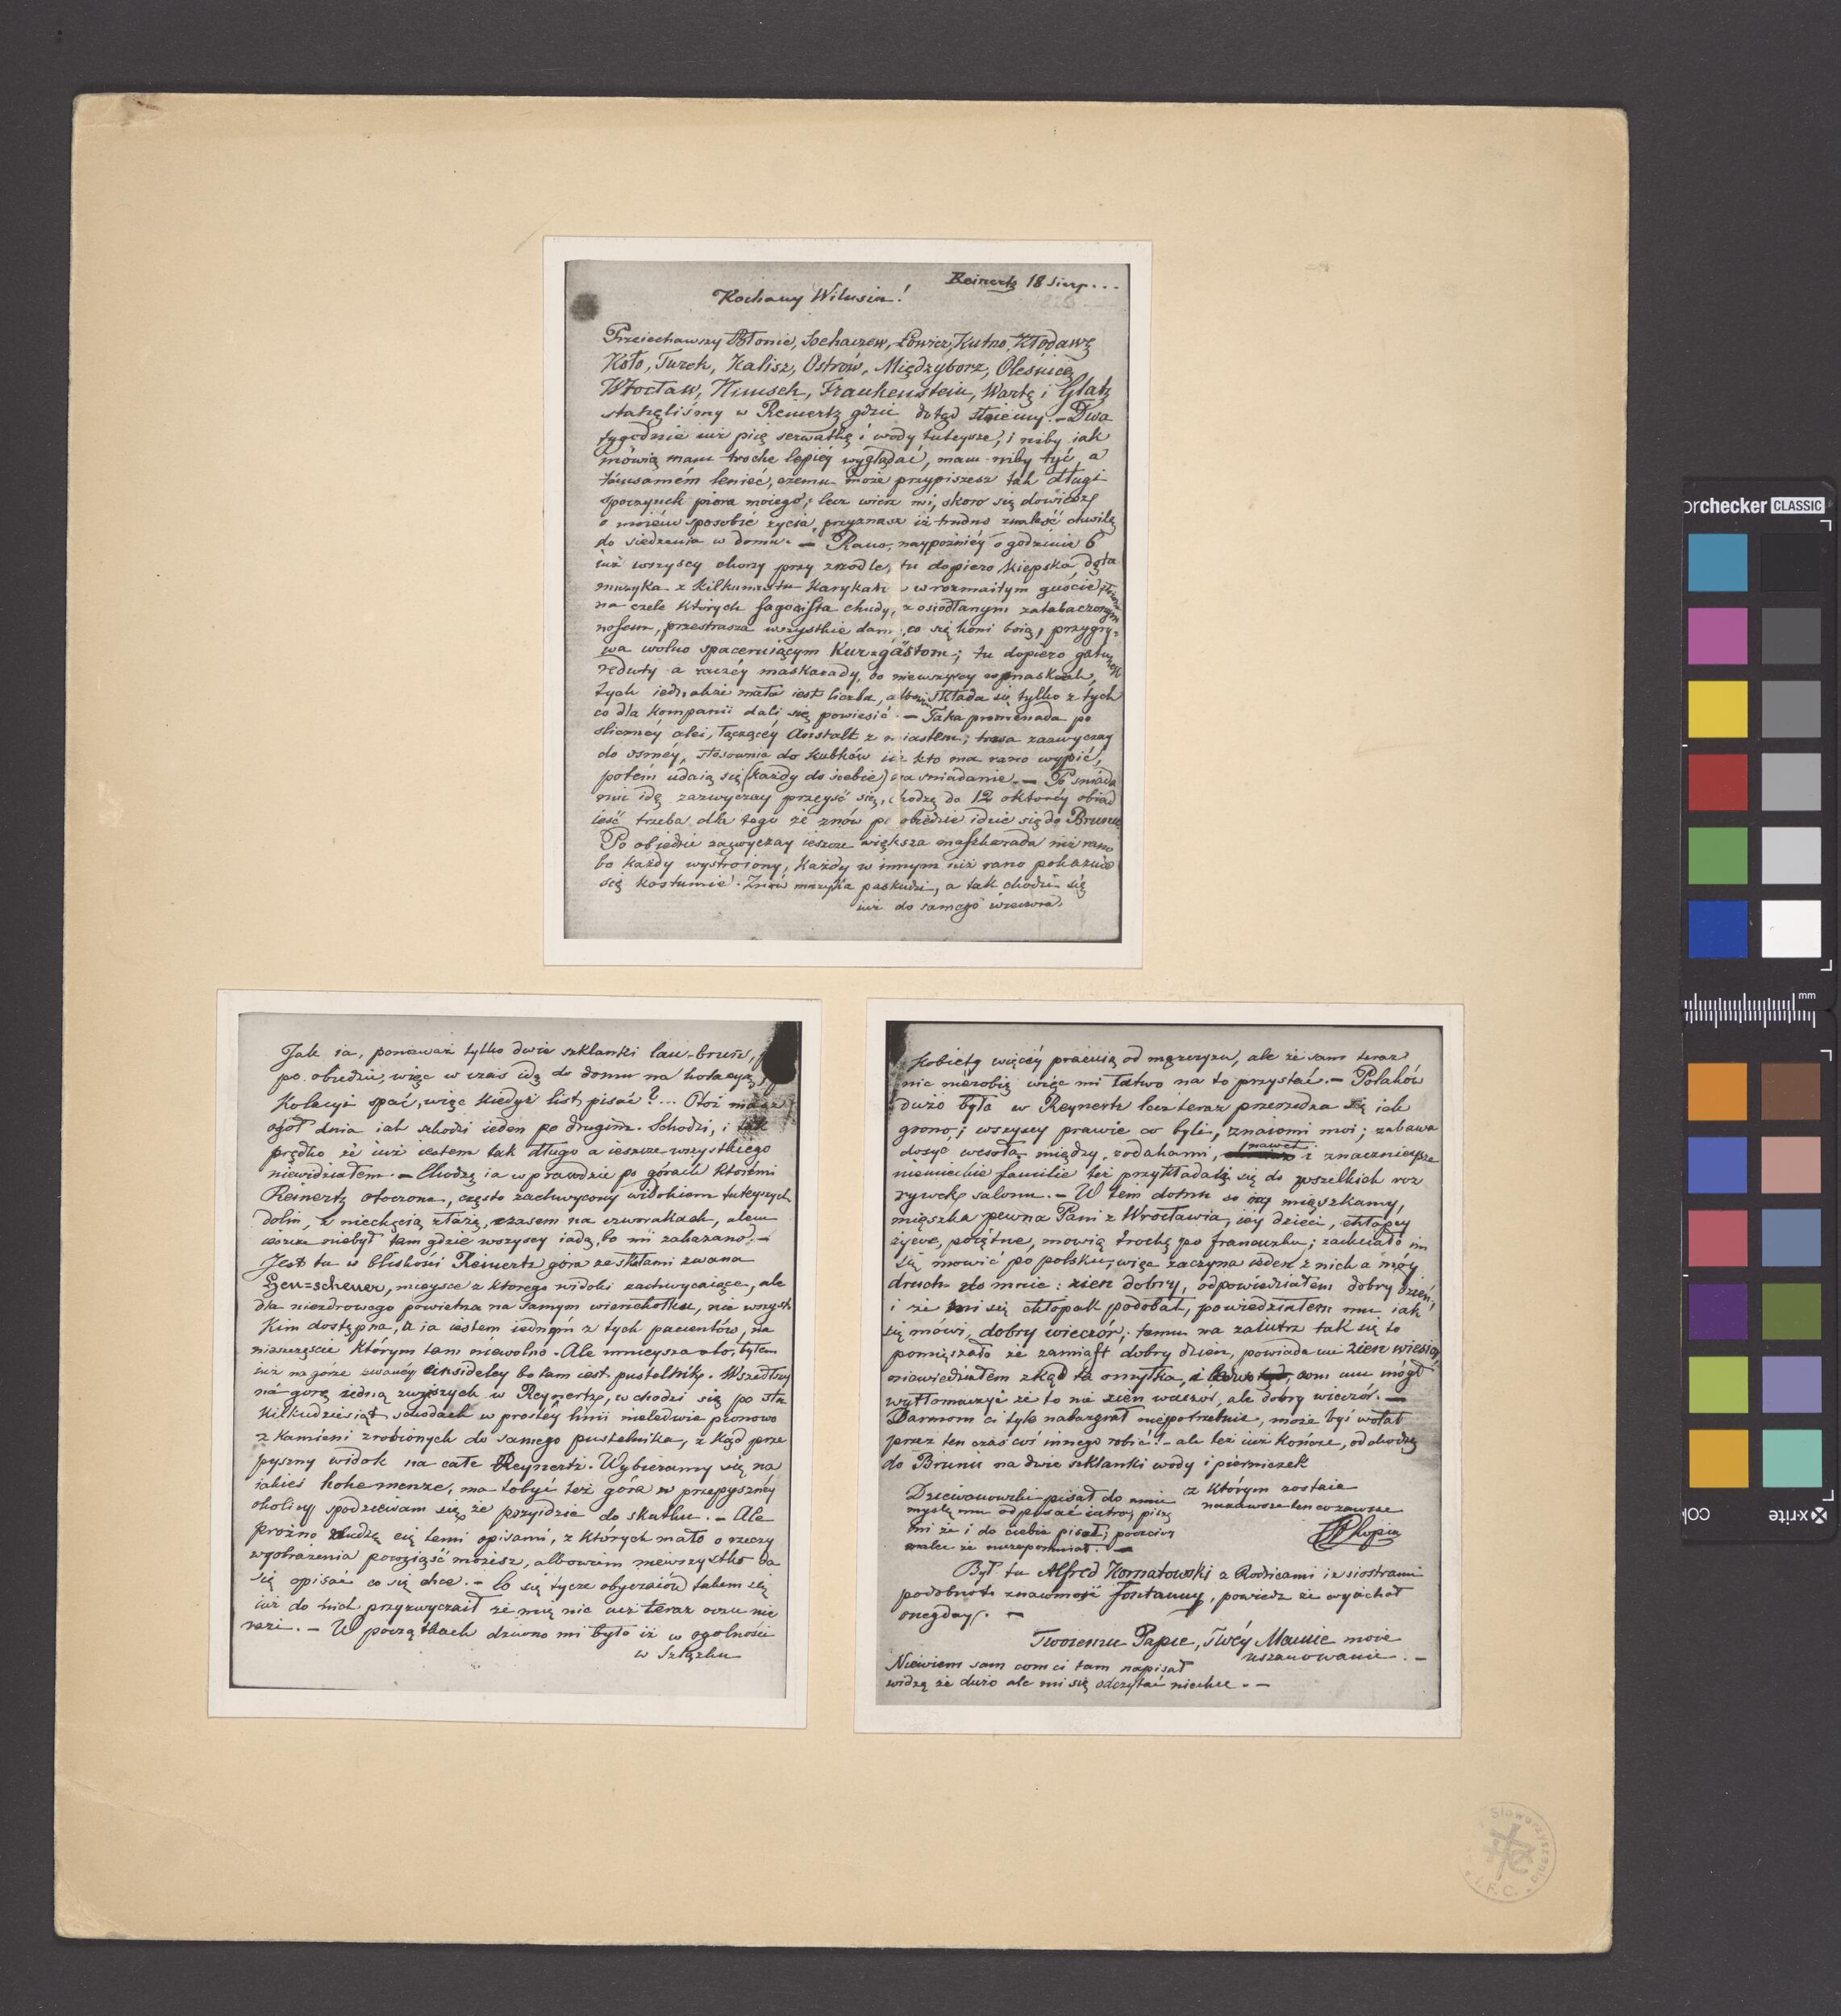 Reinertz 18 Sierp...
Kochany Wilusiu!
Przeiechawszy Błonie, Sochaczew, Łowicz, Kutno, Kłodawę
Koło, Turek, Kalisz, Ostrów, Międzyborz, Oleśnicę
Wrocław, Nimsch, Frankenstein, Wartę i Glatz
stanęliśmy w Reinertz gdzie dotąd stoiemy. – Dwa
tygodnie iuż pię serwatkę i wody tuteysze, i niby iak
mówią mam trochę lepiéy wyglądać, mam niby tyć, a
témsamém lenieć, czemu może przypiszesz tak długi
spoczynek pióra moiego; lecz wierz mi, skoro się dowiesz
o moiém sposobie życia, przyznasz iż trudno znaleść chwilę
do siedzenia w domu. – Rano, naypoźniéy o godzinie 6
iuż wszyscy chorzy przy zrodle; tu dopiero kiepska dęta
muzyka z kilkunastu karykatur w rozmaitym guście
na czele których fagocista chudy, z osiodłanym zatabaczonym
nosem, przestrasza wszystkie damy, co się koni boią, przygry-
wa wolno spaceruiącym Kurzgästom; tu dopiero gatunek
reduty a raczéy maskarady, bo niewszyscy w maskach,
tych iednakże mała iest liczba, albowiem składa się tylko z tych
co dla kompanii dali się powiesić. – Taka promenada po
sliczney alei, łączącéy Anstalt z miastem; trwa zazwyczay
do osméy, stosownie do kubków iak kto ma rano wypić,
potém udaią się (każdy do siebie) na sniadanie. – Po sniada
niu idę zazwyczay przeyść się, chodzę do 12 oktoréy obiad
ieść trzeba dla tego że znów po obiedzie idzie się do Brunu
Po obiedzie zazwyczay ieszcze większa maszkarada niż rano
bo każdy wystroiony, każdy w innym niż rano pokazuie
się kostiumie. Znów muzyka paskudzi, a tak chodzi się
iuż do samego wieczora.
Jak ia, ponieważ tylko dwie szklanki lau-brun,
po obiedzie, więc w czas idę do domu na kolacyą,
Kolacyi spać, więc kiedyż list pisać?... Otóż masz
ogół dnia iak schodzi ieden po drugim. Schodzi, i tak
prędko że iuż iestem tak długo a ieszcze wszystkiego
niewidziałem. – Chodzę ia wprawdzie po górach któremi
Reinertz otoczone, często zachwycony widokiem tuteyszych
dolin, z niechęcią złażę, czasem na czworakach, alem
ieszcze niebył tam gdzie wszyscy iadą, bo mi zakazano. –
Jest tu w bliskości Reinertz góra ze skałami zwana
Heu=scheuer, mieysce z ktorego widoki zachwycaiące, ale
dla niezdrowego powietrza na samym wierzchołku, nie wszyst
kim dostępna, a ia iestem iednym z tych pacientów, na
nieszczęście którym tam niewolno. Ale mnieysza o to, byłem
iuż na górze zwanéy einsideley bo tam iest pustelnik. Wszedłszy
na górę iedną zwyższych w Reynertz, wchodzi się po stu
kilkudziesiąt schodach w prostéy linii nieledwie pionowo
z kamieni zrobionych do samego pustelnika, z kąd prze
pyszny widok na całe Reynertz. Wybieramy się na
iakieś hohemenze, ma tobyć też góra w przepyszney
okolicy spodziewam się że przyidzie do skutku. – Ale
prożno nudzę cię temi opisami, z których mało o rzeczy
wyobrażenia powziąść możesz, albowiem niewszystko da
się opisać co się chce. – Co się tycze obyczaiow takem się
iuż do nich przyzwyczaił że mię nic iuż teraz oczu nie
razi. – W początkach dziwno mi było iż w ogolności
w Szląsku
kobiety więcéy pracuią od mężczyzn, ale że sam teraz
nic nierobię więc mi łatwo na to przystać. – Polaków
dużo było w Reynertz lecz teraz przerzedza się ich
grono; wszyscy prawie co byli, znaiomi moi; zabawa
dosyć wesoła między rodakami, nawet i znacznieysze
niemieckie familie też przykładaią się do wszelkich roz
rywek salonu. – W tém domu co my mięszkamy,
mięszka pewna Pani z Wrocławia, iéy dzieci, chłopcy
żywe, poiętne, mowią trochę po francuzku; zachciało im
się mowić po polsku, więc zaczyna ieden z nich a móy
druch do mnie: zien dobry, odpowiedziałem dobry dzień,
i że mi się chłopak podobał, powiedziałem mu iak
się mówi, dobry wieczór; temu na zaiutrz tak się to
pomięszało że zamiast dobry dzien, powiada mi zien wiesiór,
niewiedziałem zkąd ta omyłka, i ledwo com mu mógł
wytłomaczyć że to nie zién wieczór, ale dobry wieczór. –
Darmom ci tyle nabazgrał niepotrzebnie, może byś wolał
przez ten czas coś innego robić? – ale też iuż kończę, odchodzę
do Brunu na dwie szklanki wody i pierniczek
z którym zostaię
nazawsze ten co zawsze
FFChopin
Dziewanowski pisał do mnie
myslę mu odpisać iutro, pisze
mi że i do ciebie pisał; poczciwy
malec że niezapomniał. –
Był tu Alfred Kornatowski z Rodzicami iz siostrami
podobnoto znaiomość Fontanny, powiedz że wyiechał
onegday. –
Twoiemu Papie, Twéy Mamie moie
uszanowanie. –
Niewiem sam comci tam napisał
widzę że dużo ale mi się odczytać niechce. –
Stowarzyszenia
I. F. C.
orchecker CLASSIC
mm
x-rite